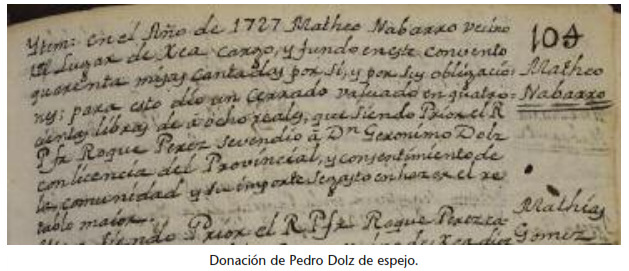 Ytem: en el Año de 1727 Matheo Nabarro vecino
del Lugar de Xea cargo, y fundo en este convento
quarenta misas cantadas por sí, y por sus obligacio-
nes: para esto dio un cerrado valuado en quatro-
cientas libras de a ocho reales, que siendo Prior el R
P fr Roque Perez se vendio á Dn Geronimo Dolz
con licencia del Provincial, y consentimiento de
la comunidad y su importe se gasto en hazer el re
tablo maior.
siendo Prior el R. P. fr. Roque Perez
de Xea
104
Matheo
Nabarro
Mathias
Gomez
Donación de Pedro Dolz de espejo.